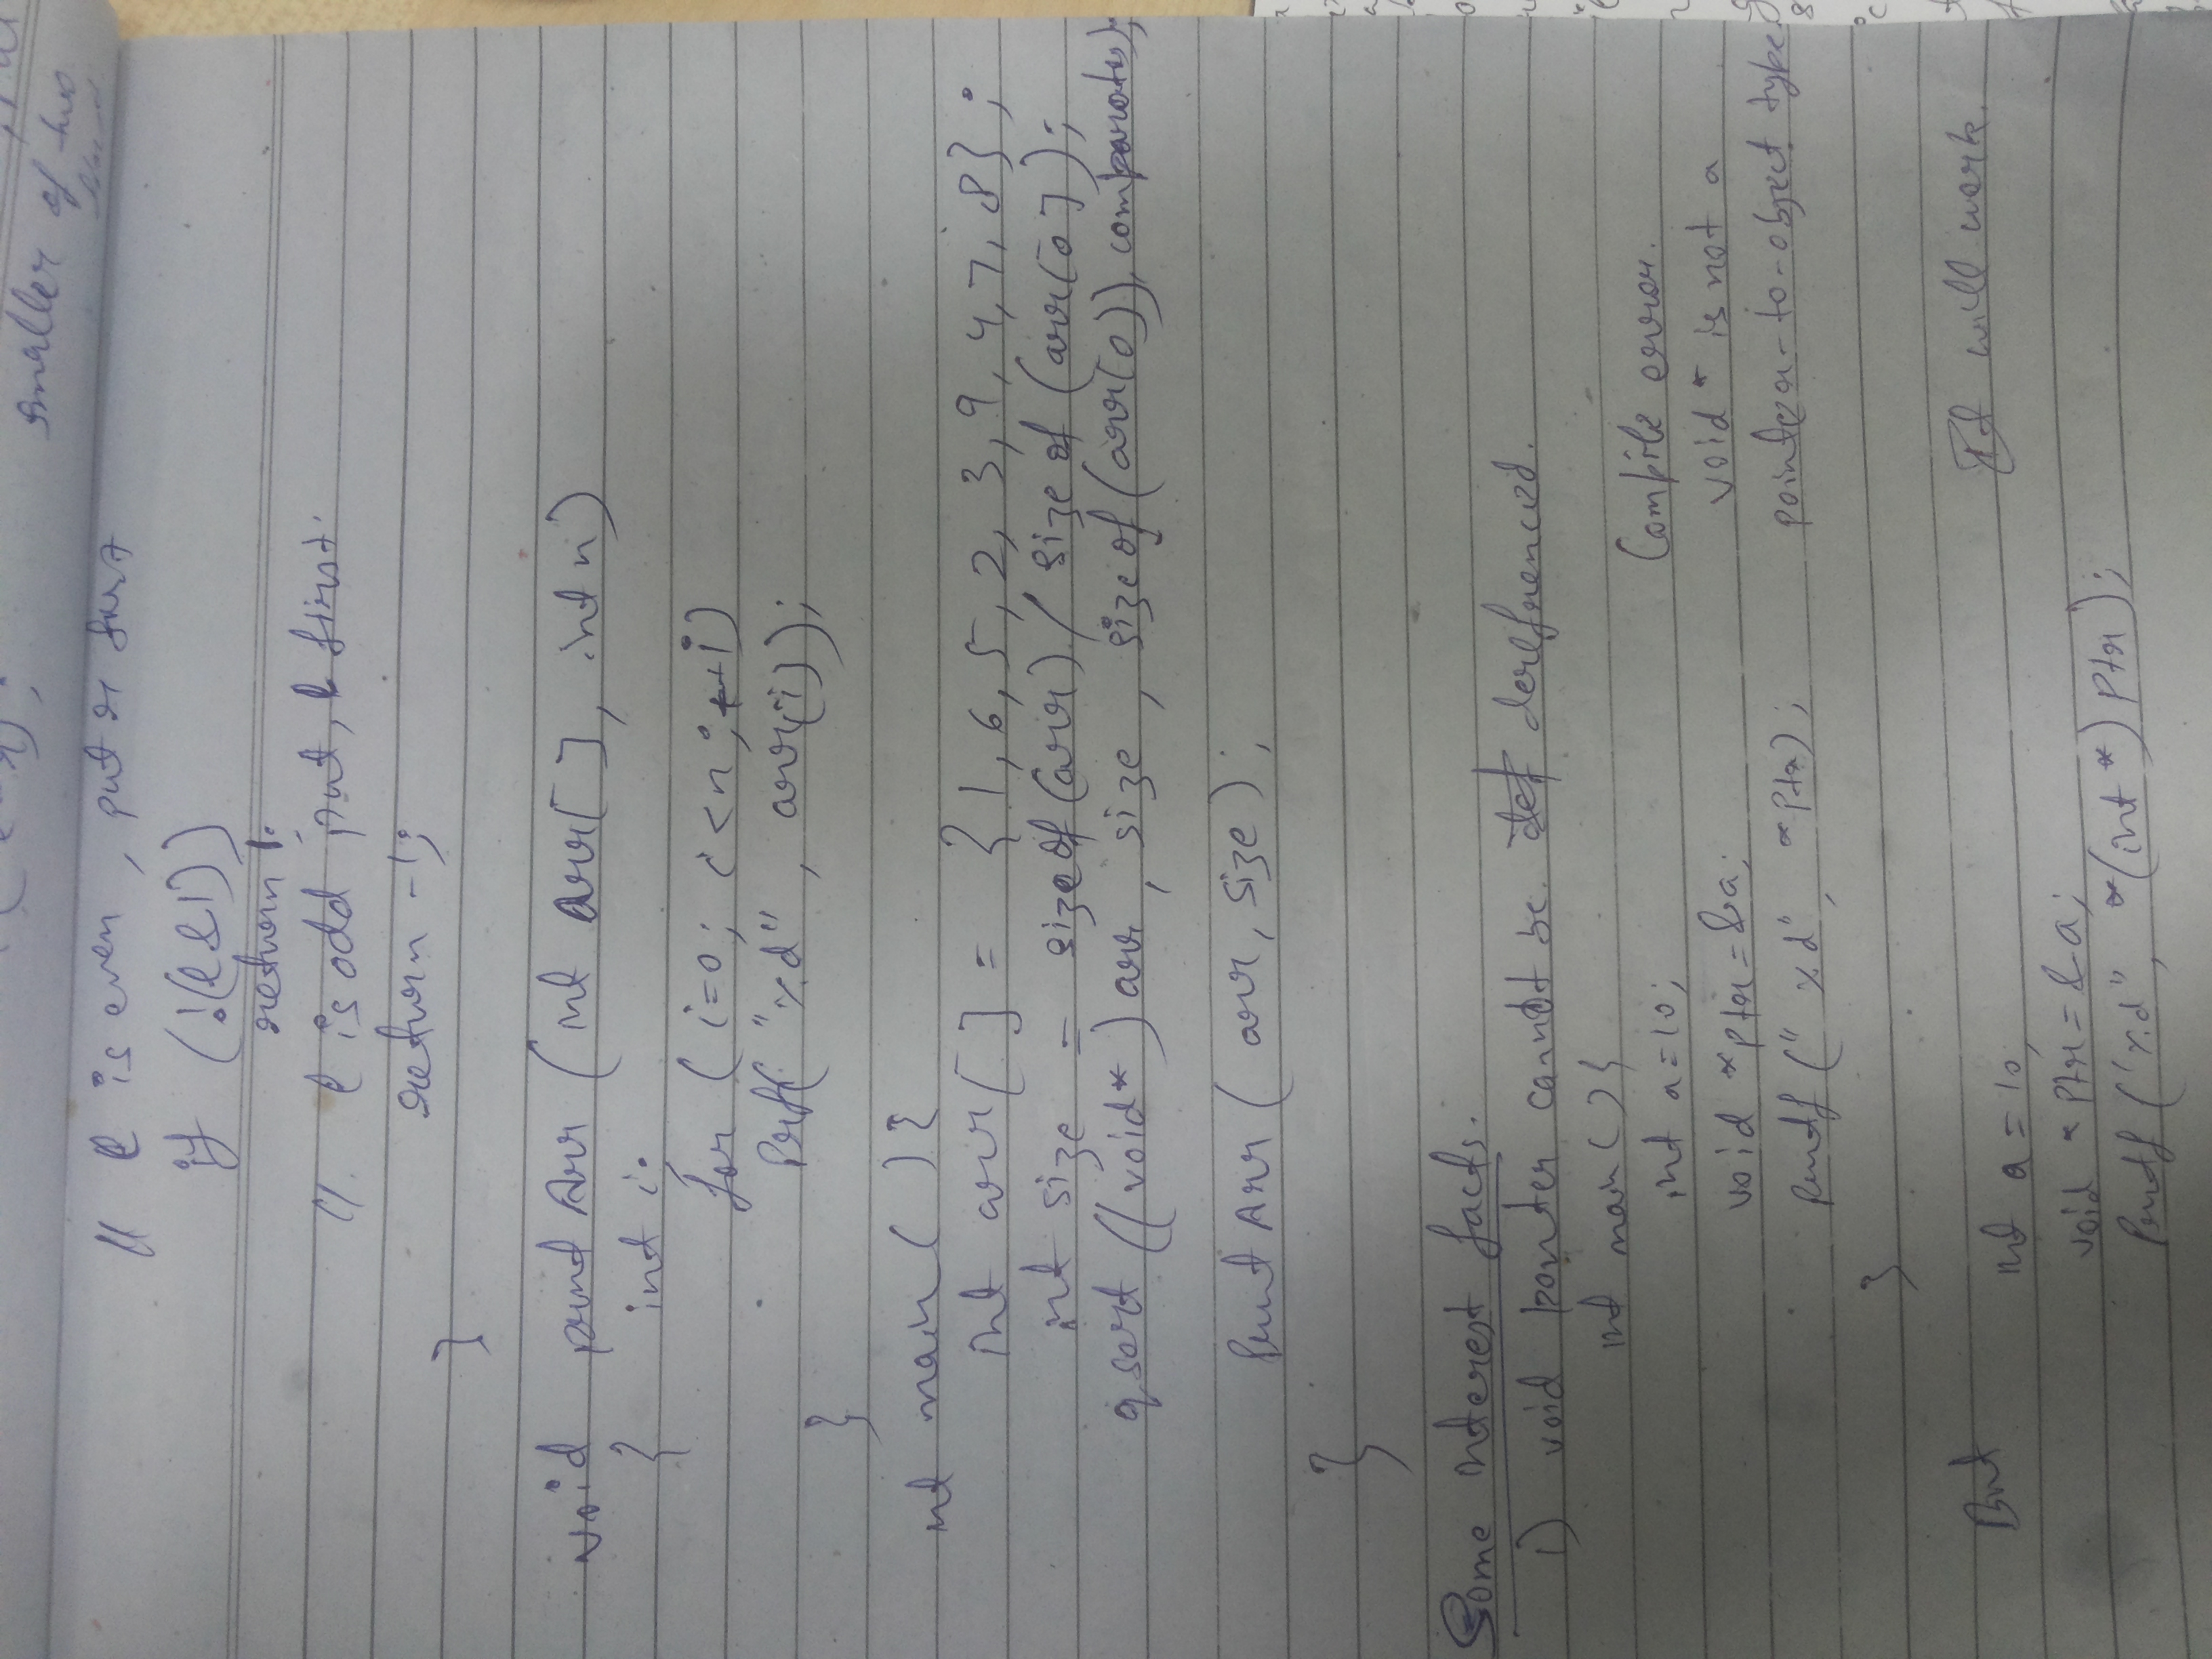 smaller of two
// l is even, put r first
if (!(l&1))
return 1;
//. l is odd put, l first.
return -1;
}
void print Arr (int arr[ ], int n)
{ int i;
for (i=0; i<n; ++i)
Prf( "%d", arr[i]);
}
int main( ){
int arr[ ] = {1, 6, 5, 2, 3, 9, 4, 7, 8};
int size = sizeof(arr) / size of (arr[0]);
qsort ((void*) arr, size, size of (arr[0]), comparator);
Print Arr ( arr, size);
}
Some interest facts.
1) void pointer cannot be dereferenced.
int main() {
int a=10;
Compile error.
void *ptr=&a;
void * is not a
printf (" %d", *ptr);
pointer-to-object type.
}
But
It will work.
int a = 10;
void * ptr=&a;
Printf ("%d", *(int *) ptr);